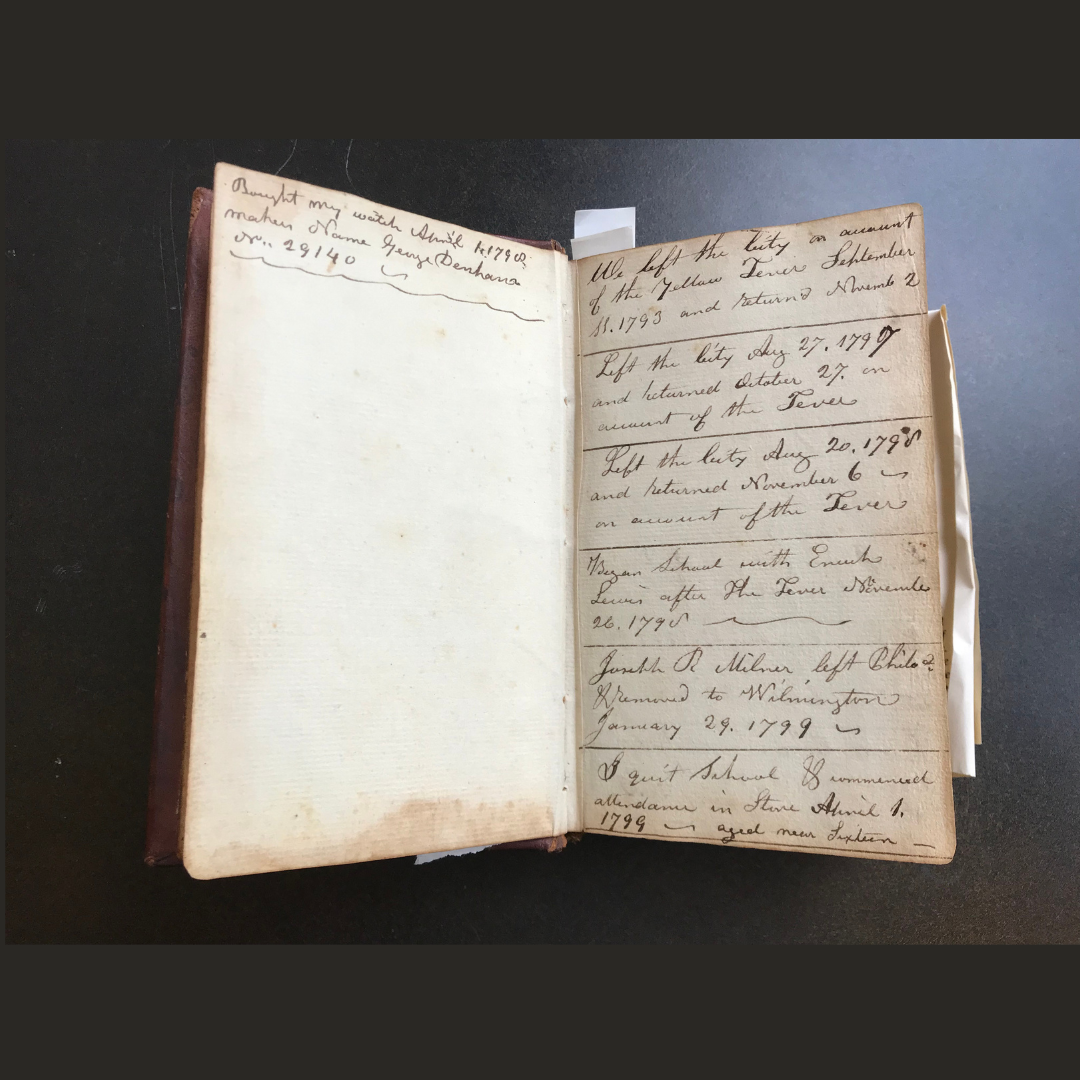 Bought my watch April 4. 1798.
makers Name George Denham
No.. 29140
We left the City on account
of the Yellow Fever September
11. 1793 and return'd Novemb 2
Left the City Aug 27. 1797
and returned October 27. on
account of the Fever
Left the City Aug 20. 1798
and returned November 6
on account of the Fever
Began School with Enoch
Lewis after the Fever November
26. 1798
Joseph R Milner left Philada
& removed to Wilmington
January 29. 1799
I quit School & commenced
attendance in Store April 1.
1799 aged near Sixteen